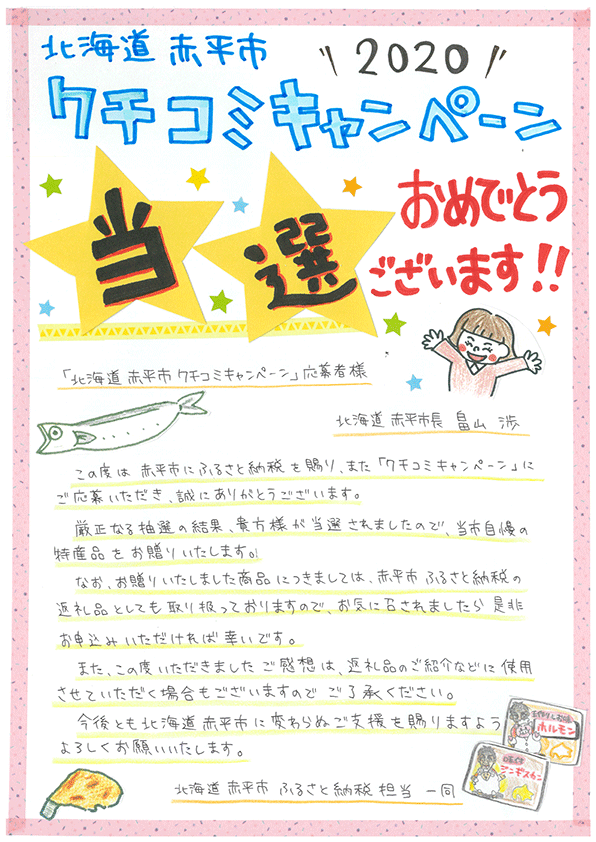 北海道 赤平市
2020
クチコミキャンペーン
当選
おめでとう
ございます!!
「北海道 赤平市 クチコミキャンペーン」応募者様
北海道 赤平市長 畠山 渉
この度は 赤平市にふるさと納税を賜り、また「クチコミキャンペーン」に
ご応募いただき、誠にありがとうございます。
厳正なる抽選の結果、貴方様が当選されましたので、当市自慢の
特産品をお贈りいたします。
なお、お贈りいたしました商品につきましては、赤平市ふるさと納税の
返礼品としても取り扱っておりますので、お気に召されましたら是非
お申込みいただければ幸いです。
また、この度いただきましたご感想は、返礼品のご紹介などに使用
させていただく場合もございますのでご了承ください。
今後とも北海道赤平市に変わらぬご支援を賜りますよう
よろしくお願いいたします。
ホルモン
味付
ジンギスカン
北海道 赤平市 ふるさと納税担当 一同